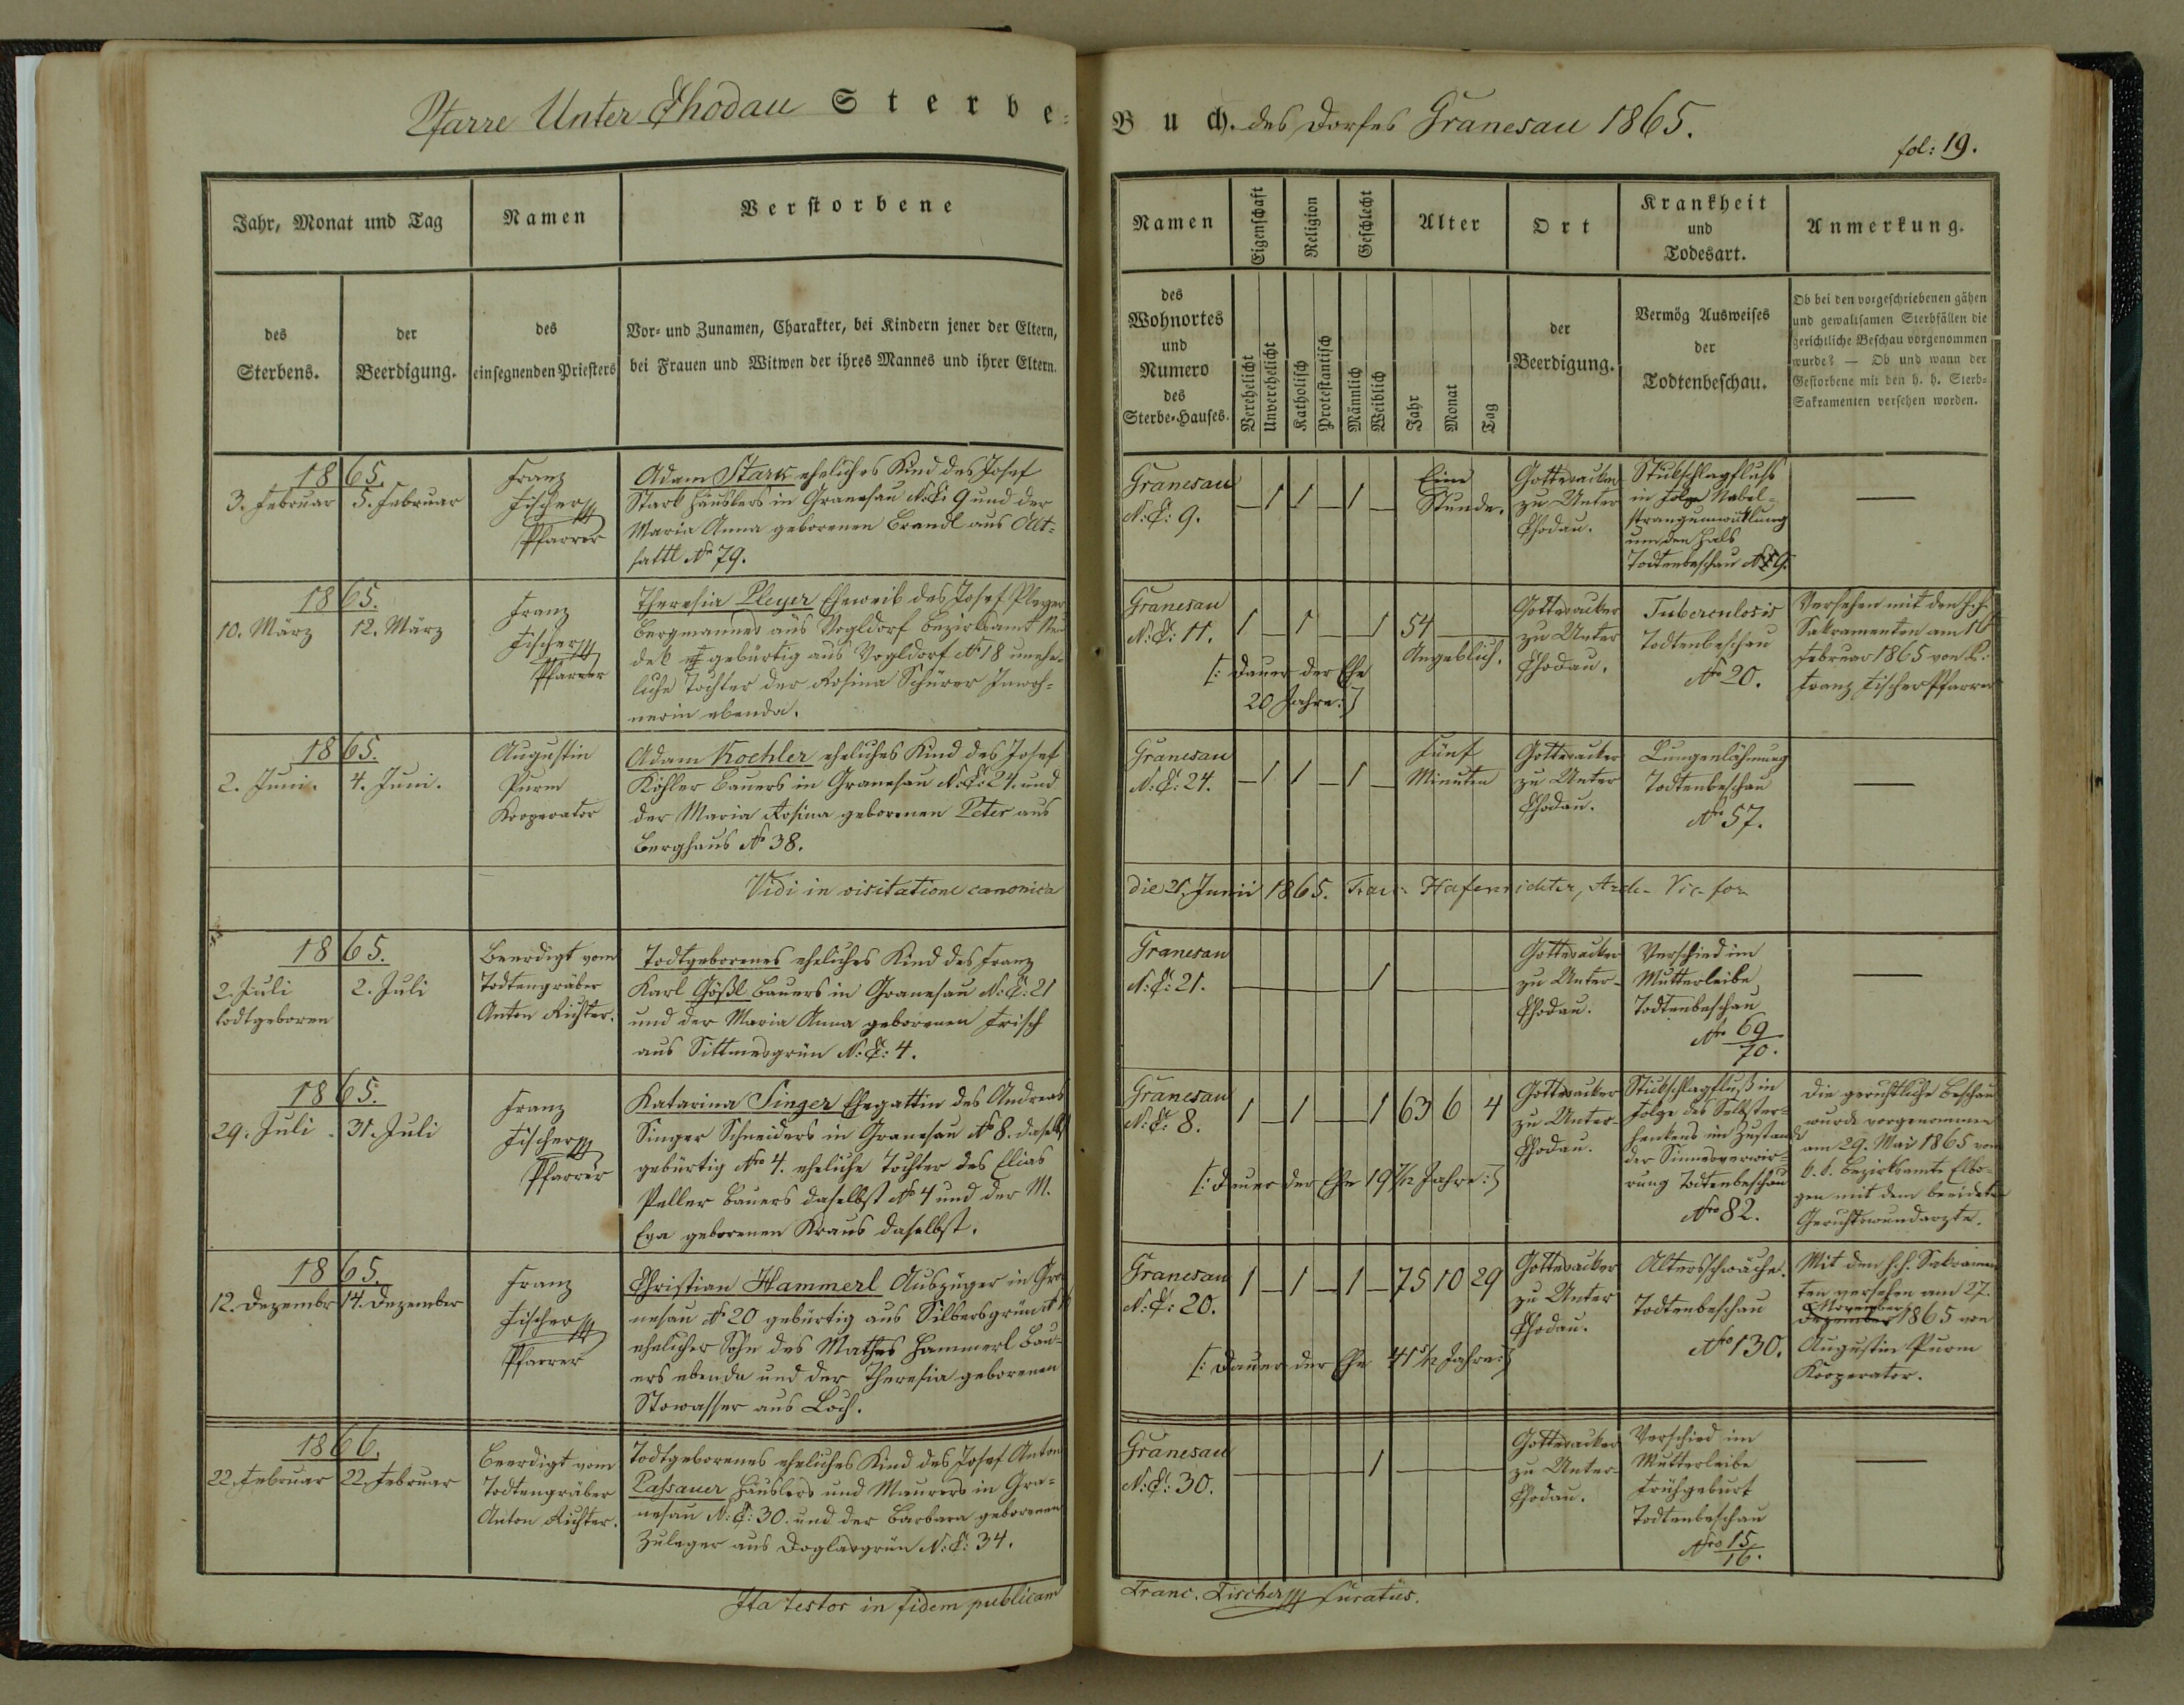 Pfarre Unter Chodau Sterbe-
Buch. des Dorfes Granesau 1865.
fol: 19.
Jahr, Monat und Tag
Namen
Verstorbene
des
Sterbens.
der
Beerdigung.
des
einsegnenden Priesters
Vor- und Zunamen, Charakter, bei Kindern jener der Eltern,
bei Frauen und Witwen der ihres Mannes und ihrer Eltern.
Namen
Eigenschaft
Religion
Geschlecht
Alter
Ort
Krankheit
und
Todesart.
Anmerkung.
des
Wohnortes
und
Numero
des
Sterbe-Hauses.
Verehelicht
Unverehelicht
Katholisch
Protestantisch
Männlich
Weiblich
Jahr
Monat
Tag
der
Beerdigung.
Vermög Ausweises
der
Todtenbeschau.
Ob bei den vorgeschriebenen gähen
und gewaltsamen Sterbfällen die
gerichtliche Beschau vorgenommen
wurde? — Ob und wann der
Gestorbene mit den h. h. Sterb-
Sakramenten versehen worden.
1865.
3. Februar
5. Februar
Franz
Fischer
Pfarrer
Adam Stark eheliches Kind des Josef
Stark Häuslers in Granesau N:C: 9 und der
Maria Anna geborenen Brandl aus Alt-
sattl No 79.
Granesau
N:C: 9.
— 1 1 — 1 —
Eine
Stunde.
Gottesacker
zu Unter
Chodau.
Stickschlagfluss
in Folge Nabel-
strangumwicklung
um den Hals
Todtenbeschau No 9.
—
1865.
10. März
12. März
Franz
Fischer
Pfarrer
Theresia Pleyer Eheweib des Josef Pleyer
Bergmannes aus Vogldorf Bezirksamt
gebürtig aus Vogldorf No 18 unehe-
liche Tochter der Rosina Schürer Inwoh-
nerin ebenda.
Granesau
N:C: 11.
1 — 1 — — 1 54 — —
Angeblich.
[: Dauer der Ehe
20 Jahre :]
Gottesacker
zu Unter
Chodau.
Tuberculosis
Todtenbeschau
No 20.
Versehen mit den h.h.
Sakramenten am
Februar 1865 von P:
Franz Fischer Pfarrer
1865.
2. Juni.
4. Juni.
Augustin
Purm
Kooperator
Adam Koehler eheliches Kind des Josef
Köhler Bauers in Granesau N:C: 24. und
der Maria Rosina geborenen Peter aus
Berghaus No 38.
Granesau
N:C: 24.
— 1 1 — 1 —
Fünf
Minuten
Gottesacker
zu Unter
Chodau.
Lungenlähmung
Todtenbeschau
No 57.
—
Vidi in visitatione canonica
die 21. Junii 1865. Franc. Hafenrichter, Arch- Vic. for
1865.
2. Juli
todtgeboren
2. Juli
Beerdigt vom
Todtengräber
Anton Richter.
Todtgeborenes eheliches Kind des Franz
Karl Gößl Bauers in Granesau N:C: 21
und der Maria Anna geborenen Frisch
aus Sittmesgrün N:C: 4.
Granesau
N:C: 21.
1
Gottesacker
zu Unter-
Chodau.
Verschied im
Mutterleibe
Todtenbeschau
No 69/70.
—
1865.
29. Juli.
31. Juli
Franz
Fischer
Pfarrer
Katarina Singer Ehegattin des Andreas
Singer Schneiders in Granesau No 8. daselbst
gebürtig Nro 4. eheliche Tochter des Elias
Peller Bauers daselbst No 4 und der M.
Eva geborenen Kraus daselbst.
Granesau
N:C: 8.
1 — 1 — — 1 63 6 4
[: Dauer der Ehe 19 7/12 Jahre :]
Gottesacker
zu Unter-
Chodau.
Stickschlagfluß in
Folge des Selbster-
henkens im Zustande
der Sinnesverwir-
rung Todtenbeschau
Nro 82.
Die gerichtliche Beschau
wurde vorgenommen
am 29. Mai 1865 vom
k. k. Bezirksamte Elbo-
gen mit dem beeideten
Gerichtswundarzte.
1865.
12. Dezember
14. Dezember
Franz
Fischer
Pfarrer
Christian Hammerl Auszügler in Gra
nesau No 20 gebürtig aus Silbersgrün
ehelicher Sohn des Mathes Hammerl Bau-
ers ebenda und der Theresia geborenen
Stowasser aus Loch.
Granesau
N:C: 20.
1 — 1 — 1 — 75 10 29
[: Dauer der Ehe 41 5/12 Jahre :]
Gottesacker
zu Unter
Chodau.
Altersschwäche.
Todtenbeschau
No 130.
Mit den h.h. Sakramen
ten versehen am 27.
November
Dezember 1865 von
Augustin Purm
Kooperator.
1866.
22. Februar
22. Februar
Beerdigt vom
Todtengräber
Anton Richter.
Todtgeborenes eheliches Kind des Josef Anton
Passauer Häuslers und Maurers in Gra-
nesau N:C: 30. und der Barbara geborenen
Zuleger aus Doglasgrün N:C: 34.
Granesau
N:C: 30.
1
Gottesacker
zu Unter-
Chodau.
Verschied im
Mutterleibe
Frühgeburt
Todtenbeschau
Nro 15/16.
—
Ita testor in fidem publicam
Franc. Fischer Curatus.